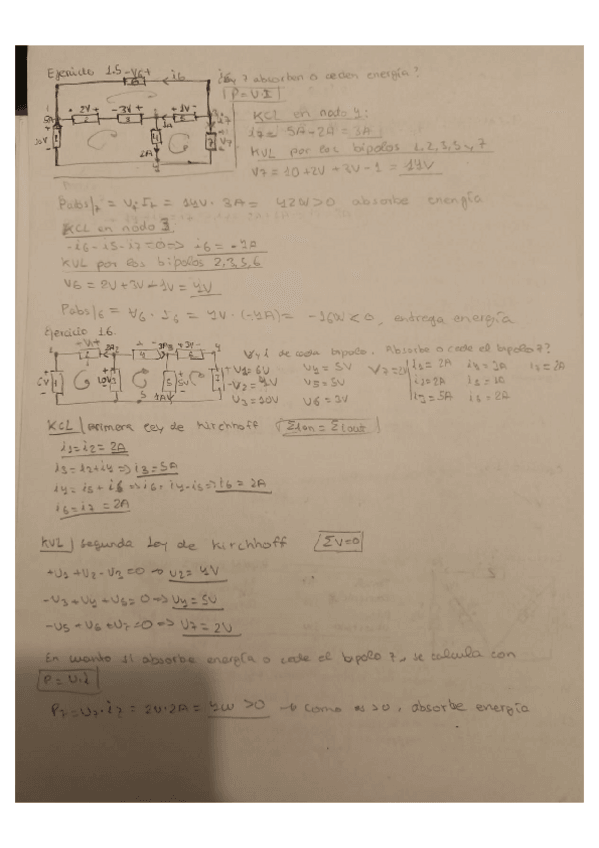 Ejercicio 1.5
-V6+
i6
i6, 7 absorben o ceden energía?
P=V·I
2V+
-3V+
+1V-
2A
10V
i7
V7
KCL en nodo 4:
i7= 5A-2A = 3A
KVL por los bipolos 1,2,3,5,7
V7=10+2V+3V-1 = 14V
Pabs/7 = V7·I7 = 14V·3A = 42W>0 absorbe energía
KCL en nodo 3:
-i6-i5-i7=0=> i6= -2A
KVL por los bipolos 2,3,5,6
V6 = 2V+3V-1V= 4V
Pabs/6 = V6·I6 = 4V·(-4A)= -16W<0, entrega energía
Ejercicio 1.6.
V y i de cada bipolo. Absorbe o cede el bipolo 7?
6V
10V
5V
V1=6V
V4=5V
V7=2V
i1=2A
i4=3A
i7=2A
V2=4V
V5=5V
i2=2A
i5=1A
V3=10V
V6=3V
i3=5A
i6=2A
KCL | Primera ley de Kirchhoff
i1=i2=2A
i3=i2+i4=> i3=5A
i4=i5+i6=>i6=i4-i5=>i6=2A
i6=i7=2A
KVL | Segunda ley de Kirchhoff ΣV=0
+V1+V2-V3=0 => V2=4V
-V3+V4+V5=0=> V4=5V
-V5+V6+V7=0=> V7=2V
En cuanto si absorbe energía o cede el bipolo 7, se calcula con
P=V·i
P7=V7·i7=2V·2A=4W>0 → Como es >0, absorbe energía